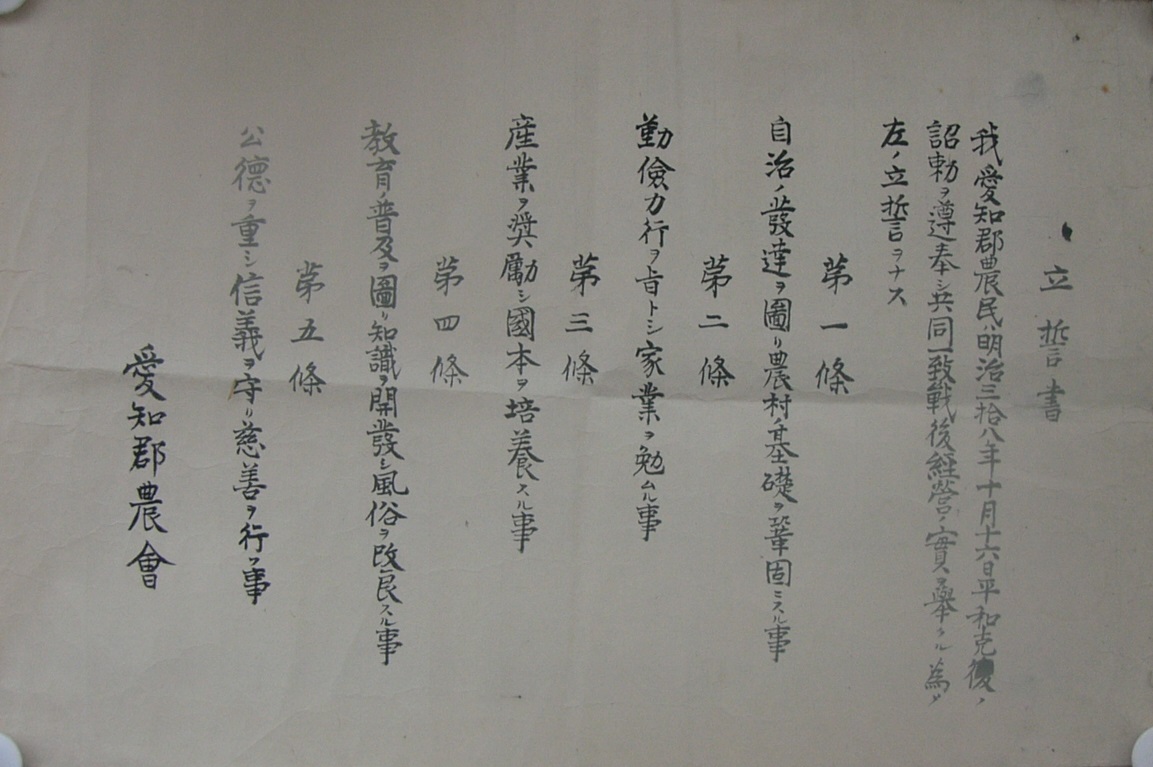 立誓書
我愛知郡農民ハ明治三拾八年十月十六日平和克復ノ
詔勅ヲ遵奉シ共同一致戰後経營ノ實ヲ舉クル為メ
左ノ立誓ヲナス
第一條
自治ノ發達ヲ圖リ農村ノ基礎ヲ鞏固ニスル事
第二條
勤儉力行ヲ旨トシ家業ヲ勉ムル事
第三條
産業ヲ奨勵シ國本ヲ培養スル事
第四條
教育ノ普及ヲ圖リ知識ヲ開發シ風俗ヲ改良スル事
第五條
公德ヲ重シ信義ヲ守リ慈善ヲ行フ事
愛知郡農會